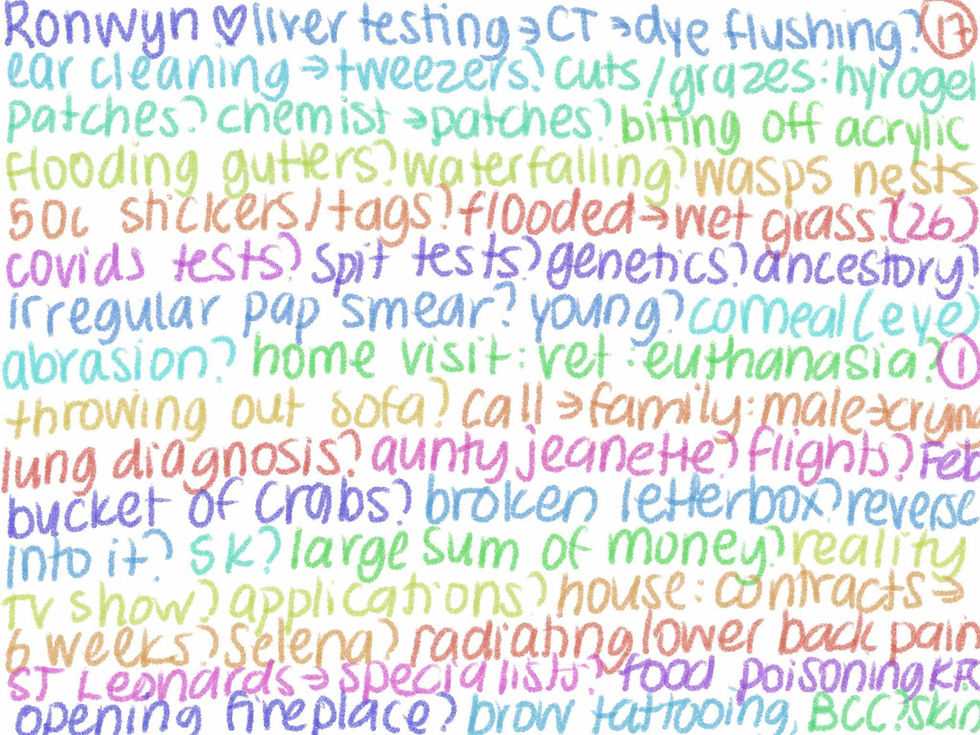 Ronwyn ♡ liver testing → CT → dye flushing? 17
ear cleaning → tweezers? cuts/grazes: hyrogel
patches? chemist → patches? biting off acrylic
flooding gutters? waterfalling? wasps nests
50c stickers/tags? flooded → wet grass (26)
covids tests? spit tests? genetics? ancestory?
irregular pap smear? young? corneal (eye)
abrasion? home visit: vet: euthanasia? 1
throwing out sofa? call → family: male →
lung diagnosis? aunty jeanette? flights? Feb
bucket of crabs? broken letterbox? reverse
into it? 5k? large sum of money? reality
TV show? applications? house: contracts →
6 weeks? Selena? radiating lower back pain
ST Leonards → specialists? food poisoning
opening fireplace? brow tattooing, BCC? skin